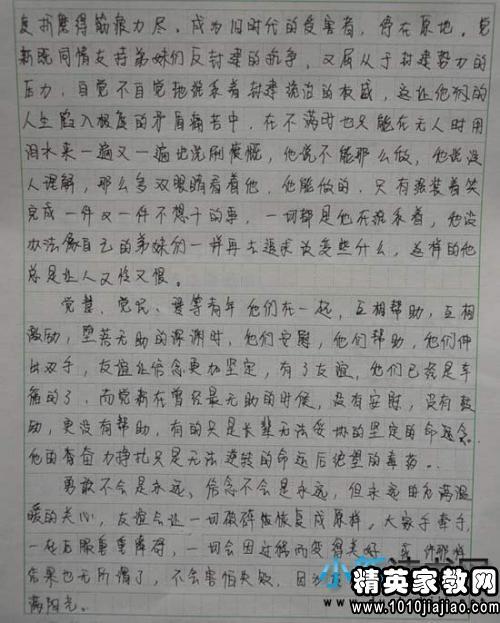 复折磨得筋疲力尽。成为旧时代的受害者，停在原地。觉
新既同情支持弟妹们反封建的抗争，又屈从于封建势力的
压力，自觉不自觉地维系着封建统治的权威，这让他们的
人生陷入极度的矛盾痛苦中，在不满时也只能在无人时用
泪水来一遍又一遍地洗刷愤慨，他说不能那么做，他说没
人理解，那么多双眼睛看着他，他能做的，只有强装着笑
完成一件又一件不想干的事，一切都是他在维系着，他没
办法像自己的弟妹们一样再去追求改变些什么，这样的他
总是让人又怜又恨。
觉慧、觉民、琴等青年他们在一起，互相帮助，互相
激励，坠落无助的深渊时，他们安慰，他们帮助，他们伸
出双手，友谊让信念更加坚定，有了友谊，他们已经是幸
福的了，而觉新在曾经最无助的时候，没有安慰，没有鼓
励，更没有帮助，有的只是长辈无法妥协的坚定的命运念
他的奋力挣扎只是无法逆转的命运后绝望的毒药。
勇敢不会是永远、信念不会是永远，但永远因为满温
暖的关心，友谊会让一切破碎恢复成原样。大家手牵手，
一起克服重重障碍，一切会因友情而变得美好
结果也无所谓了，不会害怕失败，因
满阳光。
精英家教网
www.1010jiajiao.com